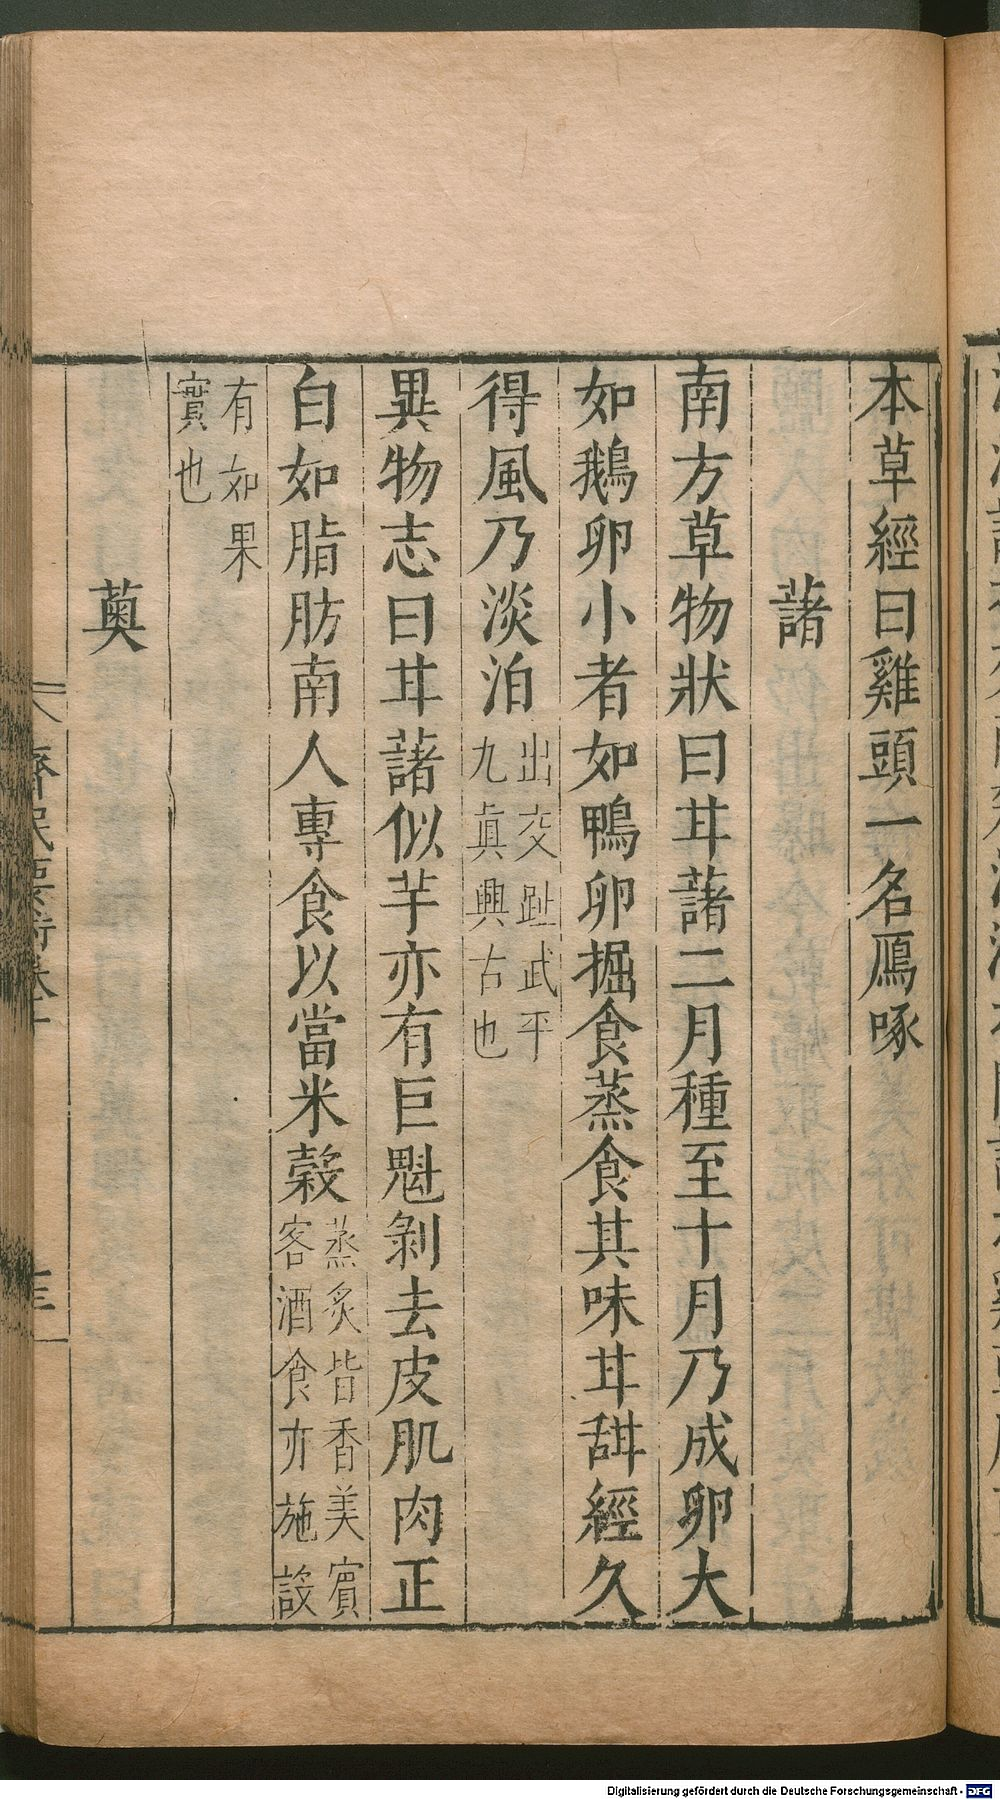 本草經曰雞頭一名鴈啄
藷
南方草物狀曰甘藷二月種至十月乃成卵大
如鵝卵小者如鴨卵掘食蒸食其味甘甜經久
得風乃淡泊出交趾武平
九眞興古也
異物志曰甘藷似芋亦有巨魁剝去皮肌肉正
白如脂肪南人專食以當米穀蒸炙皆香美賓
客酒食亦施設
有如果
實也
薁
齊民要術卷十
Digitalisierung gefördert durch die Deutsche Forschungsgemeinschaft - DFG